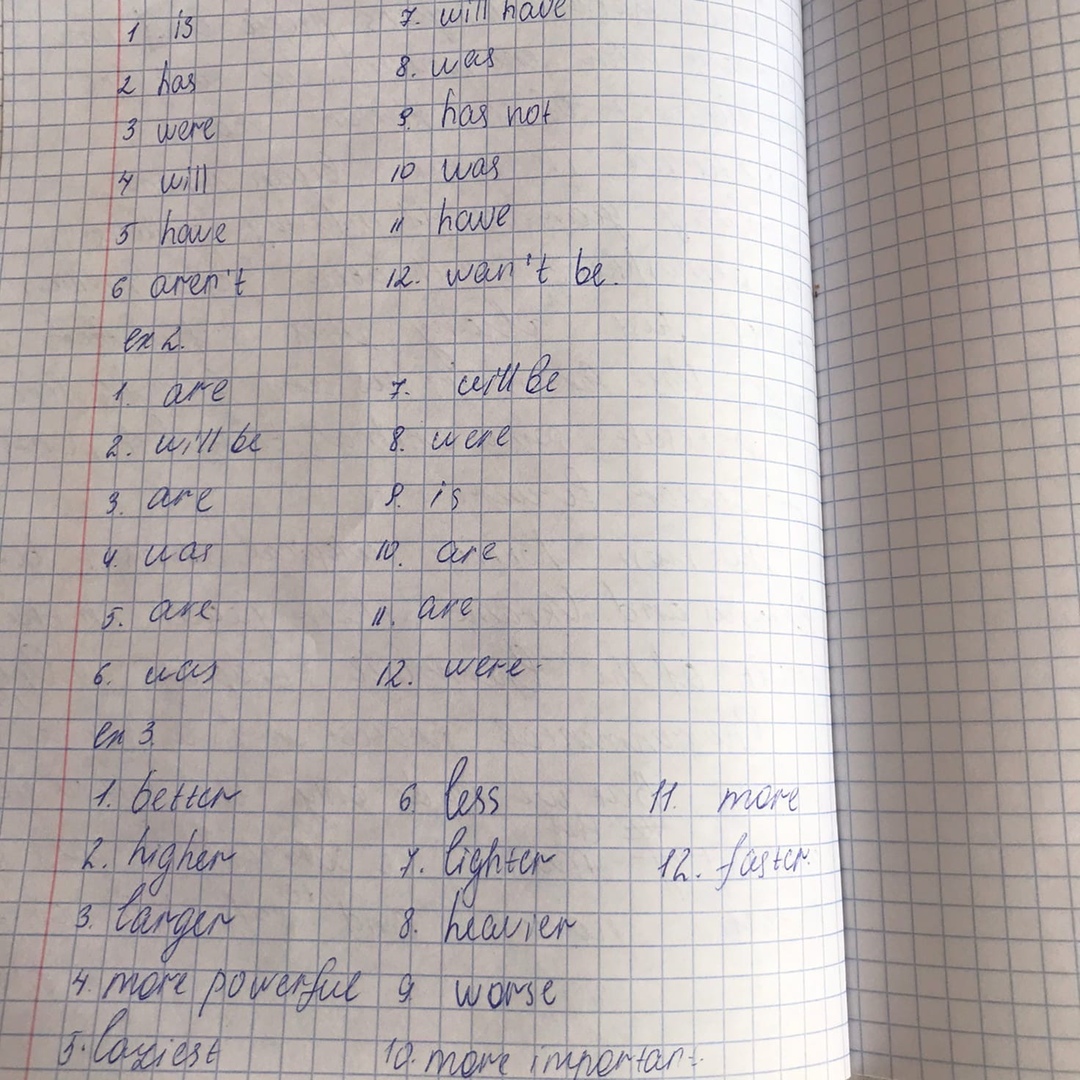 1 is 7. will have
2 has 8. was
3 were 9. has not
4 will 10 was
5 have 11 have
6 aren't 12. wan't be.
ex 2.
1. are 7. will be
2. will be 8. were
3. are 9. is
4. was 10. are
5. are 11. are
6. was 12. were.
ex 3.
1. better 6. less 11. more
2. higher 7. lighter 12. faster.
3. larger 8. heavier
4. more powerful 9 worse
5. laziest 10. more important.